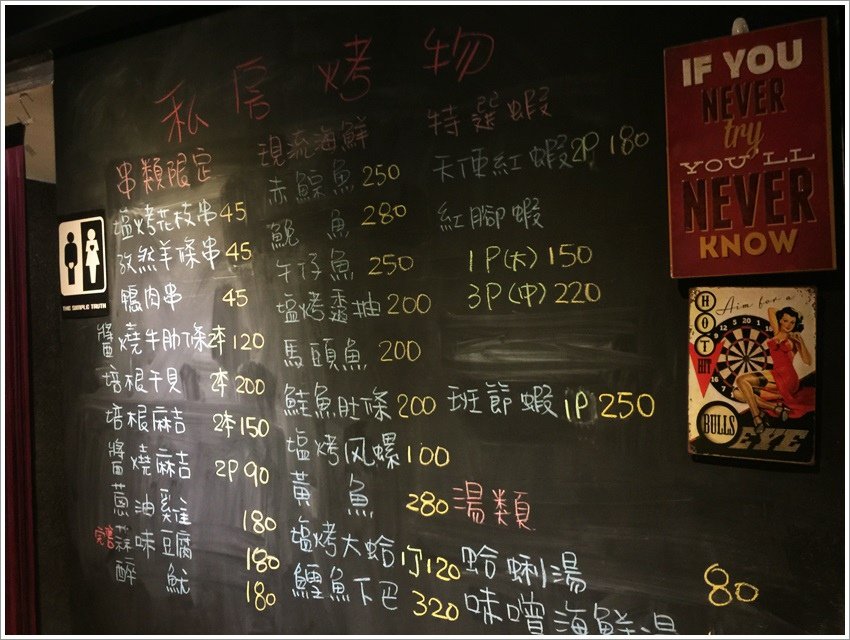 私房烤物
串類限定
塩烤花枝串45
孜然羊條串45
鴨肉串 45
醬燒牛肋條2本120
培根干貝 2本200
培根麻吉 2本150
醬燒麻吉 2P90
蔥油雞 180
完售 蒜味豆腐 180
醉魷 180
現流海鮮
赤鯮魚250
鮸魚 280
午仔魚 250
塩烤透抽200
馬頭魚 200
鮭魚肚條200
塩烤风螺100
黃魚 280
塩烤大蛤1汀120
鱈魚下巴 320
特選蝦
天使紅蝦2P 180
紅腳蝦
1P(大)150
3P(中)220
班節蝦 1P 250
湯類
蛤蜊湯 80
味噌海鮮湯
THE SIMPLE TRUTH
IF YOU
NEVER
try
YOU'LL
NEVER
KNOW
HOT
HIT
Aim for a
BULLS
EYE